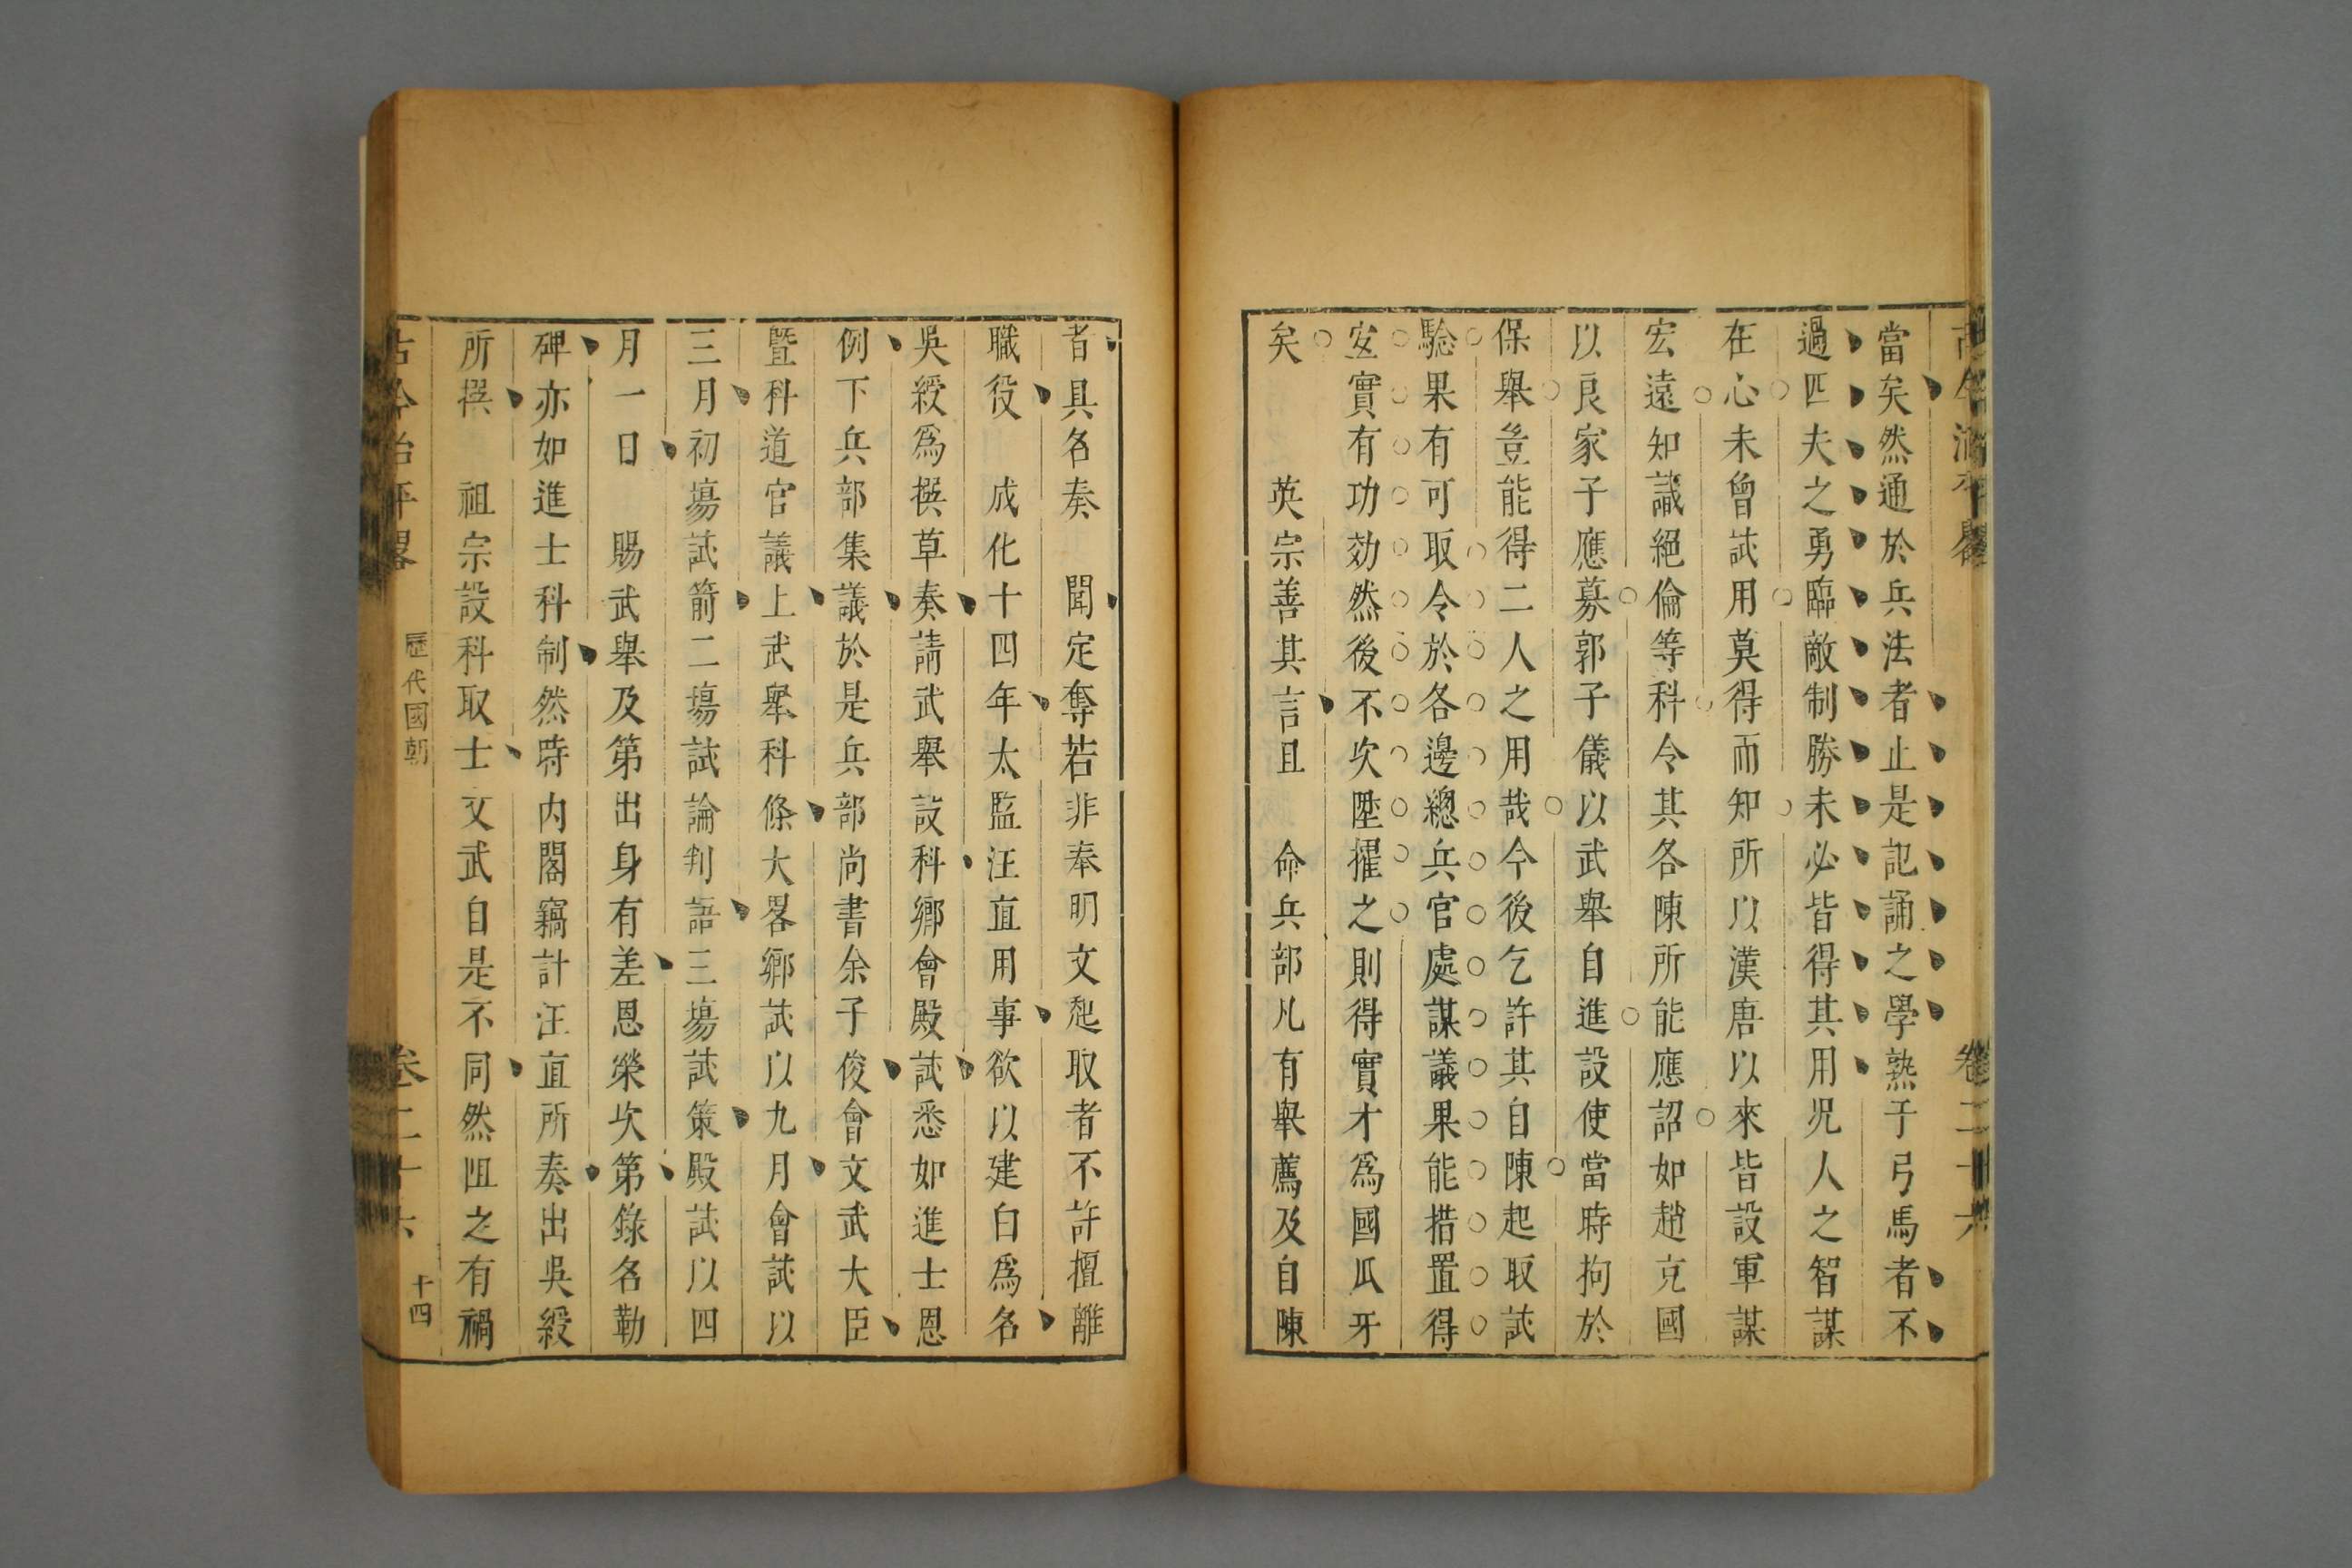 當矣然通於兵法者止是記誦之學熟于弓馬者不
過匹夫之勇臨敵制勝未必皆得其用况人之智謀
在心未曾試用莫得而知所以漢唐以來皆設軍謀
宏遠知識絕倫等科令其各陳所能應詔如趙克國
以良家子應募郭子儀以武舉自進設使當時拘於
保舉豈能得二人之用哉今後乞許其自陳起取試
驗果有可取令於各邊總兵官處謀議果能措置得
安實有功効然後不次陞擢之則得實才爲國瓜牙
矣　　英宗善其言且　命兵部凡有舉薦及自陳
者具名奏　聞定奪若非奉明文起取者不許擅離
職役　成化十四年太監汪直用事欲以建白爲名
吳綬爲撰草奏請武舉設科鄉會殿試悉如進士恩
例下兵部集議於是兵部尚書余子俊會文武大臣
暨科道官議上武舉科條大畧鄉試以九月會試以
三月初塲試箭二塲試論判語三塲試策殿試以四
月一日　賜武舉及第出身有差恩榮次第錄名勒
碑亦如進士科制然時内閣竊計汪直所奏出吳綬
所撰　祖宗設科取士文武自是不同然阻之有禍
古今治平畧
歷代國朝
卷二十六
十四